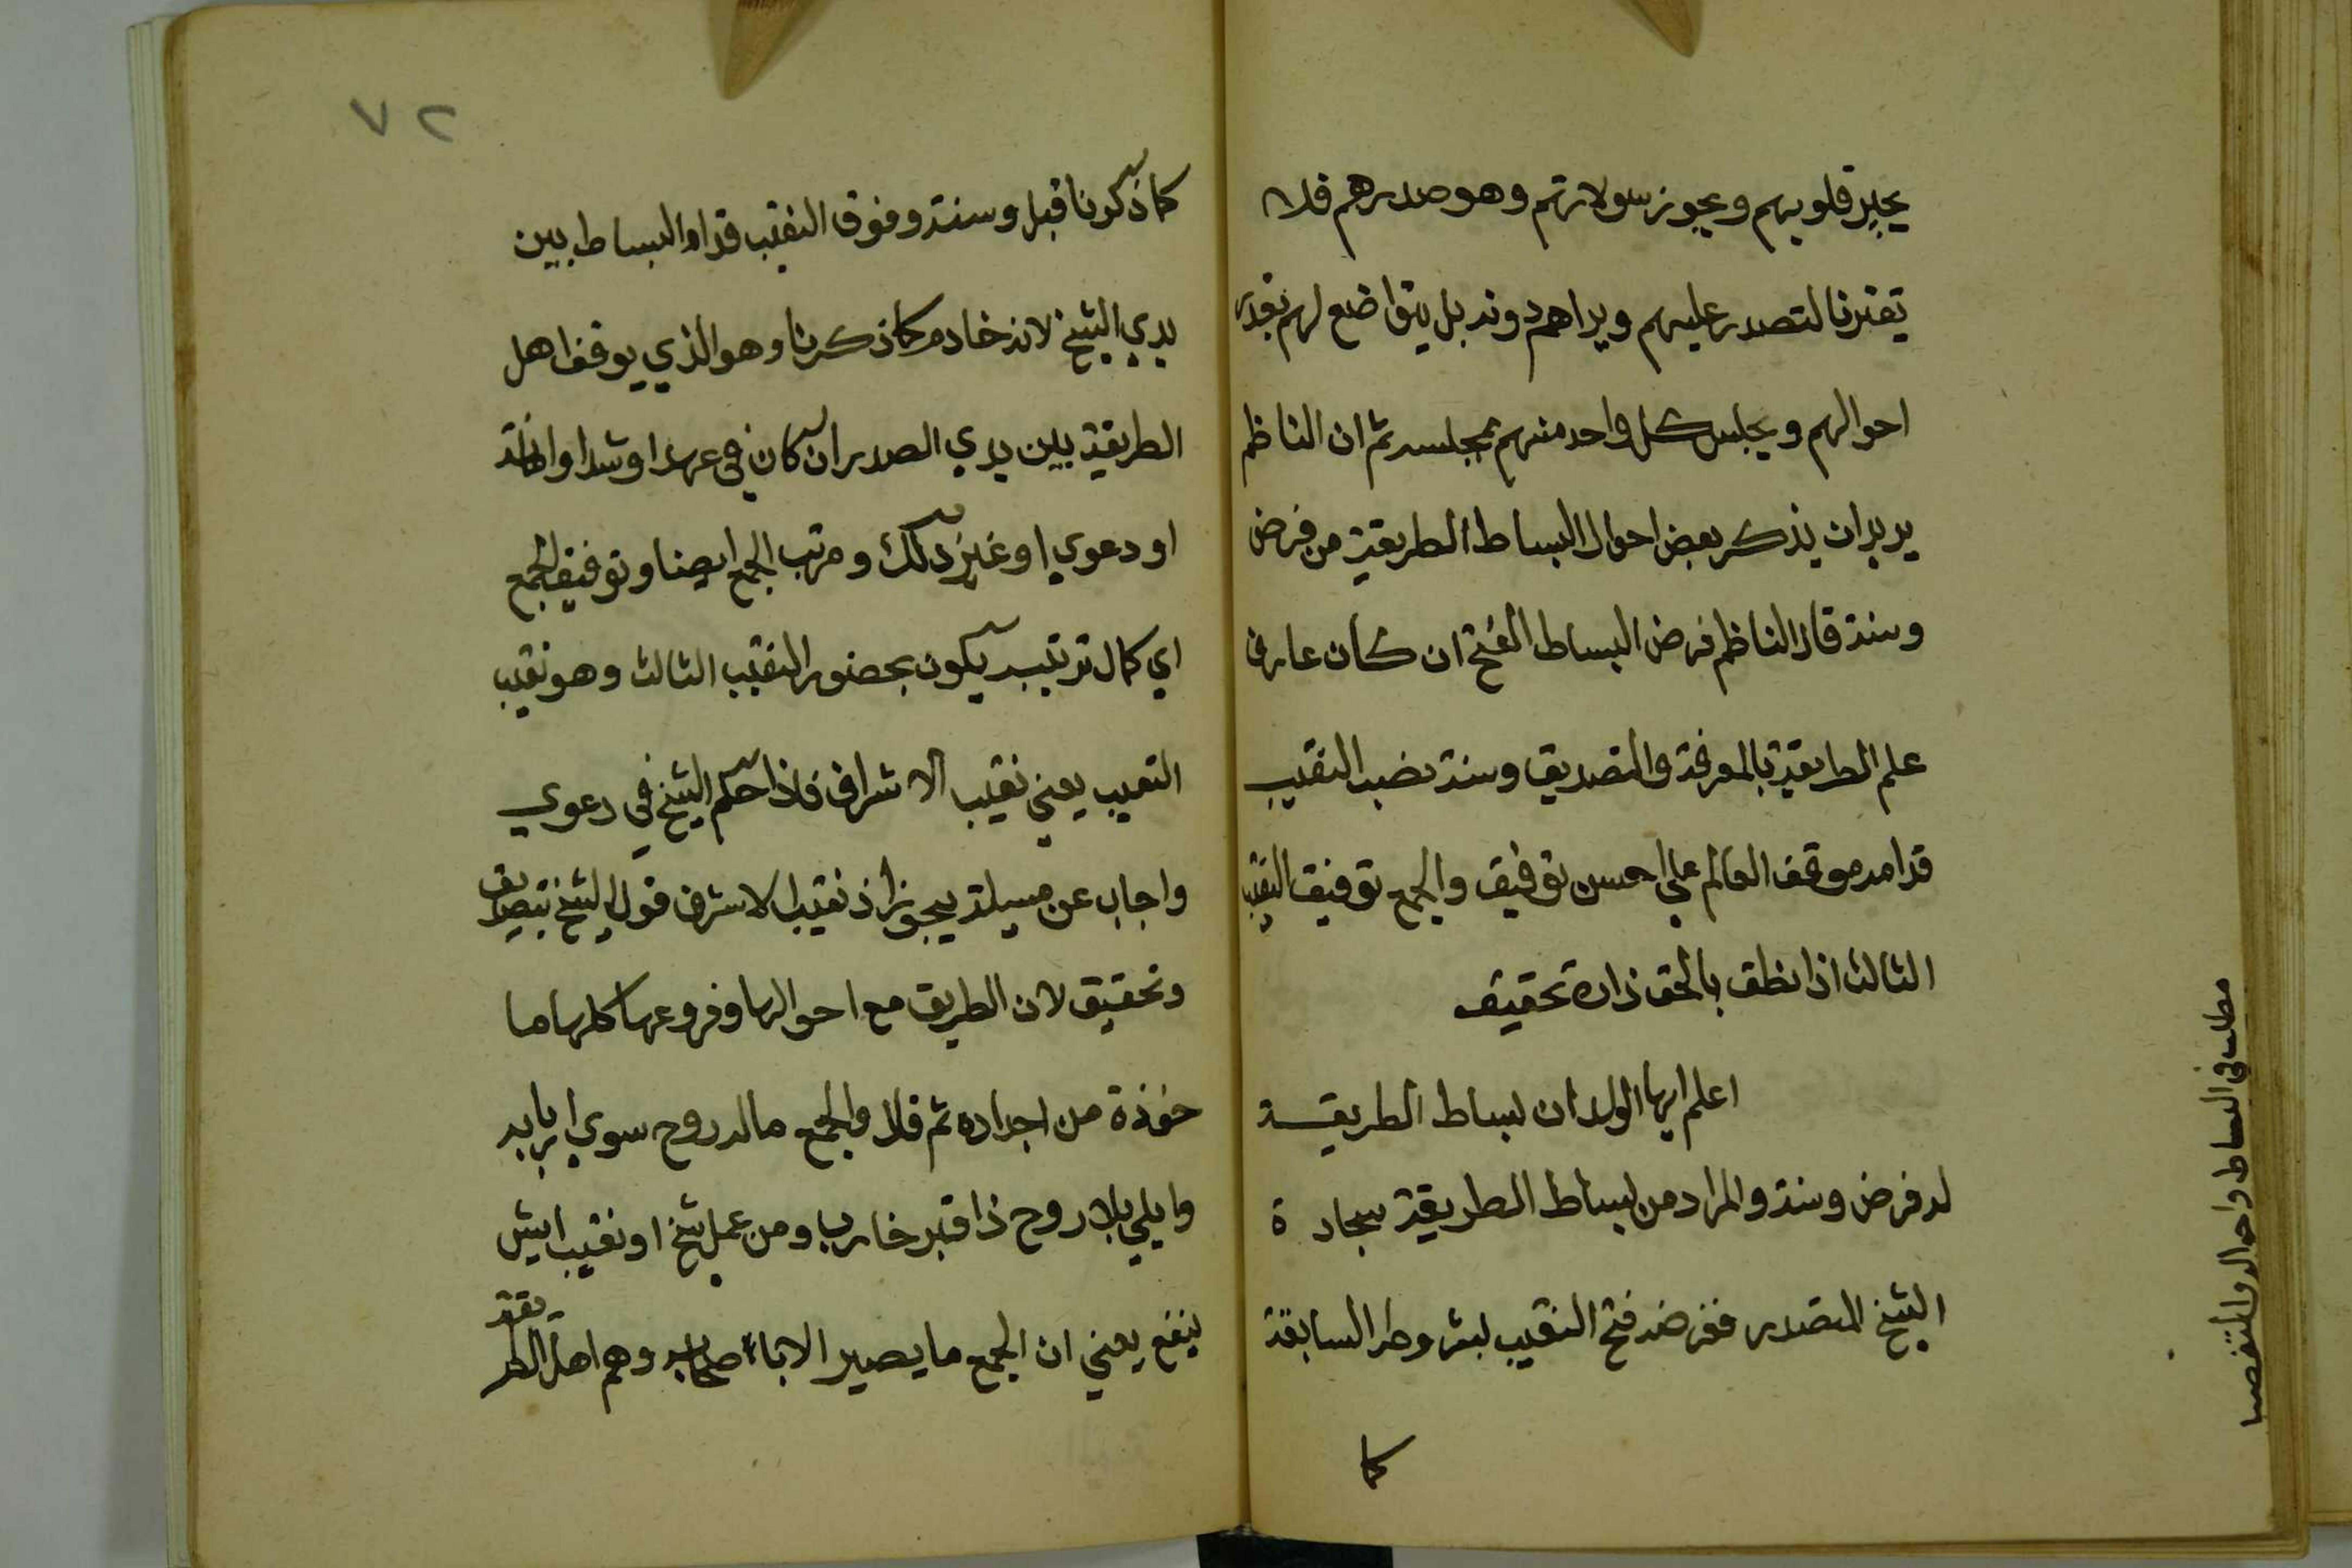 يجبر قلوبهم ويجوز سولاتهم وهو صدرهم فلا
يغتر بالتصدر عليهم ويراهم دونه بل يتواضع لهم بقدر
احوالهم ويجلس كل واحد منهم بمجلسه ثم ان الناظم
يريد ان يذكر بعض احوال البساط الطريقة من فرض
وسنة قال الناظم فرض البساط الفتح ان كان عارف
علم الطريقة بالمعرفة والتصديق وسنة نصب النقيب
قدامه موقف العالم علي احسن توفيق والجمع توفيق النقيب
الثالث اذا نطق بالحق زاده تحقيق
اعلم ايها الولد ان بساط الطريقة
له فرض وسنة والمراد من بساط الطريقة سجادة
الشيخ المتصدر ففرضه فتح النقيب بشروط السابقة
كما
مطلب في البساط واحواله
٧٢
كما ذكرنا قبل وسنته وقوف النقيب قدام البساط بين
يدي الشيخ لانه خادم كما ذكرنا وهو الذي يوقف اهل
الطريقة بين يدي الصدر ان كان في عهد او شد او
او دعوي او غير ذلك ومرتب الجمع ايضا وتوفيق الجمع
اي كمال ترتيبه يكون بحضور النقيب الثالث وهو نقيب
النقيب يعني نقيب الاشراف فاذا حكم الشيخ في دعوي
واجاب عن مسيلة يجوز اذ نقيب الاشرف قول الشيخ بتصديق
وتحقيق لان الطريق مع احوالها وفروعها كلها ما
خوذة من اجداده ثم قال والجمع ماله روح سوي اربابه
وايلي بلا روح ذا قبر خارب ومن عمل شيخ او نقيب ايش
ينفع يعني ان الجمع ما يصير الا باصحابه وهم اهل الطريقة